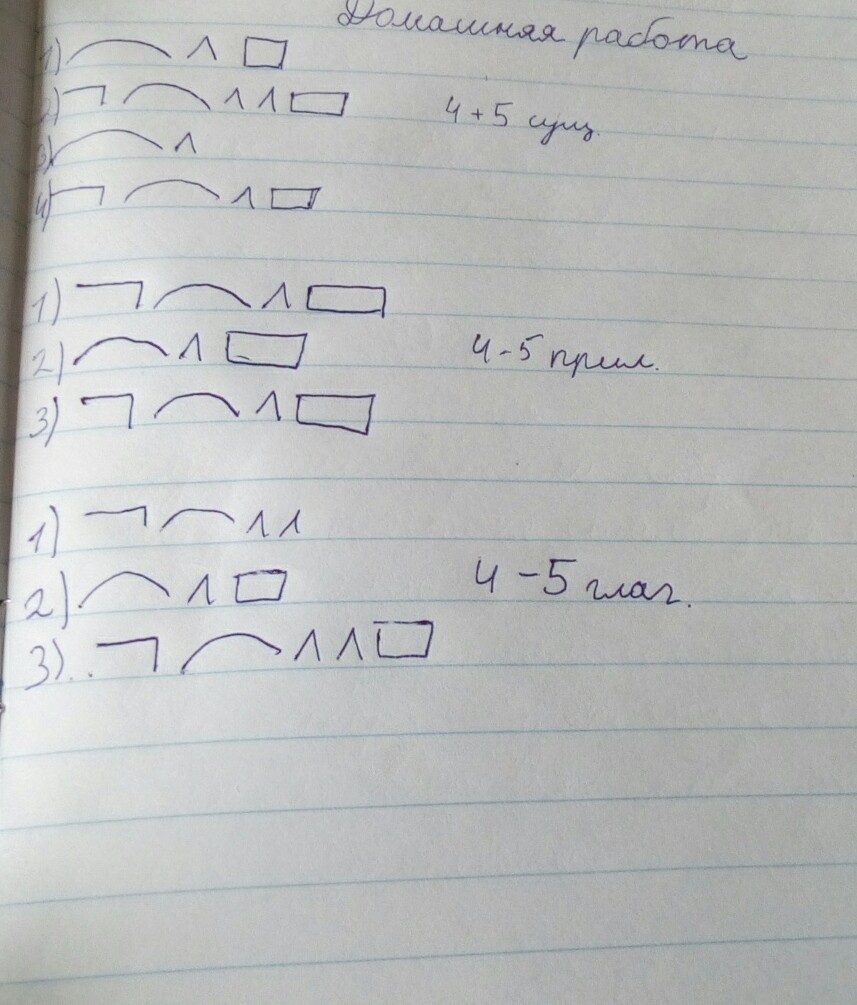 Домашняя работа
1)
2) 4+5 сущ.
3)
4)
1)
2) 4-5 прил.
3)
1)
2) 4-5 глаг.
3)